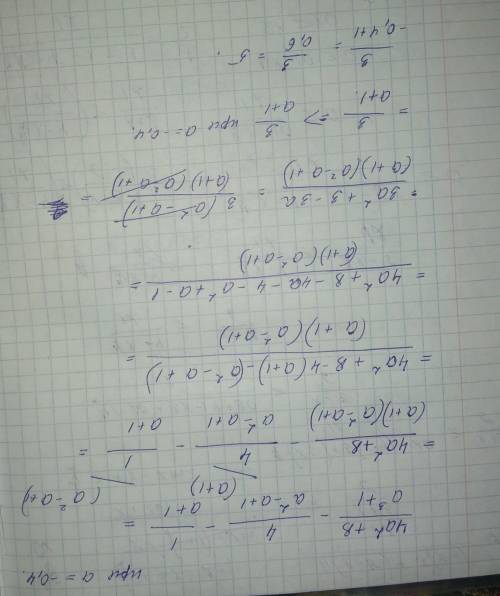 при a = -0,4.
(4a² + 8)/(a³ + 1) - 4/(a² - a + 1) - 1/(a + 1) =
(a + 1) (a² - a + 1)
= (4a² + 8)/((a + 1)(a² - a + 1)) - 4/(a² - a + 1) - 1/(a + 1) =
= (4a² + 8 - 4(a + 1) - (a² - a + 1))/((a + 1)(a² - a + 1)) =
= (4a² + 8 - 4a - 4 - a² + a - 1)/((a + 1)(a² - a + 1)) =
= (3a² + 3 - 3a)/((a + 1)(a² - a + 1)) = 3(a² - a + 1)/((a + 1)(a² a + 1)) =
= 3/(a + 1) => 3/(a + 1) при a = -0,4.
3/(-0,4 + 1) = 3/0,6 = 5.